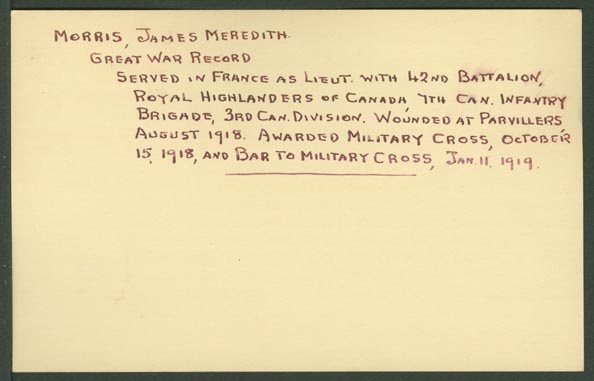 MORRIS, JAMES MEREDITH.
GREAT WAR RECORD
SERVED IN FRANCE AS LIEUT. WITH 42ND BATTALION,
ROYAL HIGHLANDERS OF CANADA, 7TH CAN. INFANTRY
BRIGADE, 3RD CAN. DIVISION. WOUNDED AT PARVILLERS
AUGUST 1918. AWARDED MILITARY CROSS, OCTOBER
15, 1918, AND BAR TO MILITARY CROSS, JAN. 11, 1919.